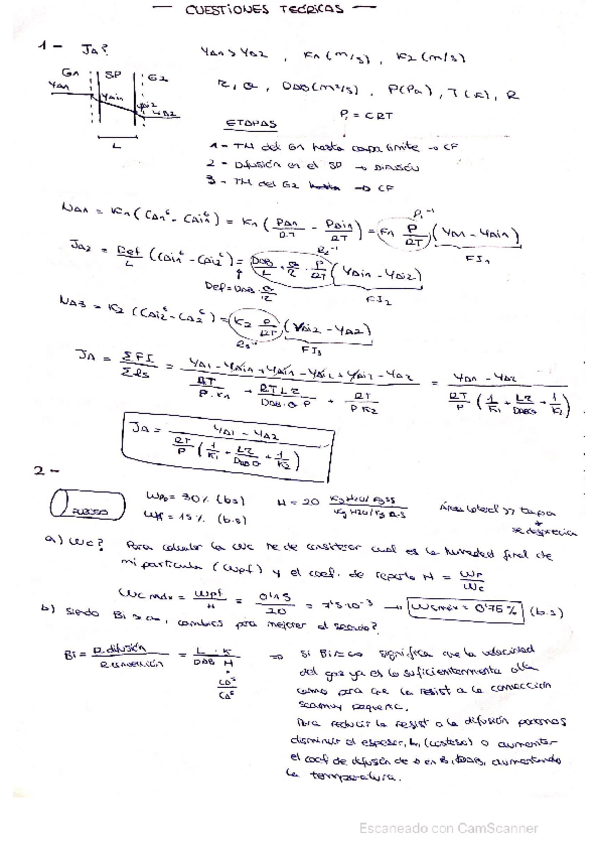 — CUESTIONES TEÓRICAS —
1 - JA? YA1 > YA2 , K1 (m/s) , K2 (m/s)
G1 SP G2
YA1 YAi1 YAi2 YA2
L
τ, θ, DAB (m²/s), P(Pa), T(K), R
P = CRT
ETAPAS
1 - TM del G1 hasta capa límite → CF
2 - Difusión en el SP → DIFUSIÓN
3 - TM del G2 hasta → CF
NA1 = K1 (CA1ᴳ - CAi1ᴳ) = K1 (PA1/RT - PAi1/RT) = K1 P/RT (YA1 - YAi1)
R1⁻¹
FI1
JA2 = Def/L (CAi1ᴳ - CAi2ᴳ) = DAB/L · θ/τ · P/RT (YAi1 - YAi2)
R2⁻¹
FI2
Def = DAB · θ/τ
NA3 = K2 (CAi2ᴳ - CA2ᴳ) = K2 P/RT (YAi2 - YA2)
R3⁻¹
FI3
JA = ΣFI/ΣRs = (YA1 - YAi1 + YAi1 - YAi2 + YAi2 - YA2) / (RT/P·K1 + RTLτ/DAB·θ P + RT/P K2) = (YA1 - YA2) / (RT/P (1/K1 + Lτ/DABθ + 1/K2))
JA = (YA1 - YA2) / (RT/P (1/K1 + Lτ/DABθ + 1/K2))
2 -
Wp0 = 30% (b.s)
Wpf = 15% (b.s)
H = 20 Kg H2O/Kg SS / Kg H2O/Kg A.S
Área lateral >> tapa
se desprecia
a) Wc? Para calcular la Wc he de considerar cual es la humedad final de
mi partícula (Wpf) y el coef. de reparto H = Wp/Wc
Wc máx = Wpf/H = 0'15/20 = 7'5·10⁻³ → Wcmáx = 0'75% (b.s)
b) Siendo Bi → ∞, cambios para mejorar el secado?
Bi = R difusión / R convección = L · K / DAB H ⇒ Si Bi → ∞ significa que la velocidad
del gas ya es lo suficientemente alta
como para que la resist a la convección
sea muy pequeña.
Para reducir la resist a la difusión podemos
disminuir el espesor, L, (costoso) o aumentar
el coef de difusión de A en B, DAB, aumentando
la temperatura.
Escaneado con CamScanner